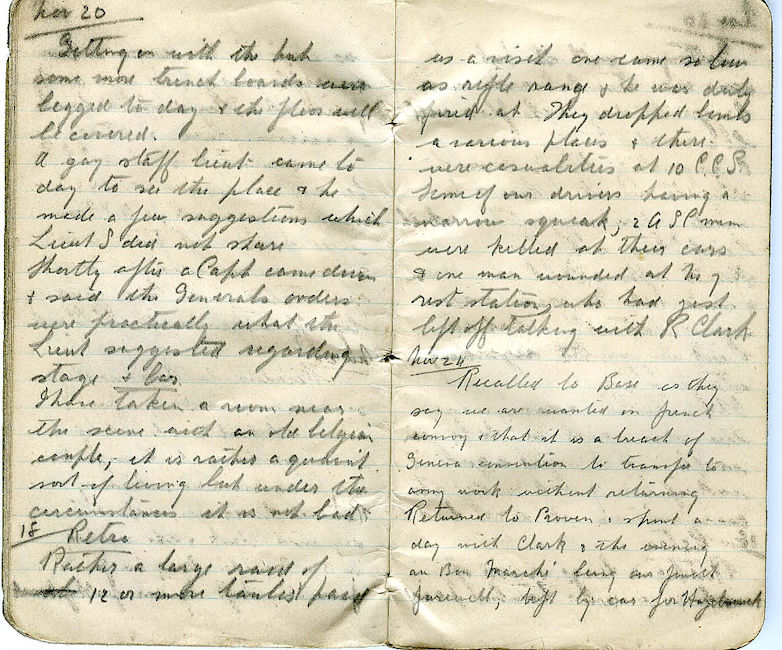 Nov 20
Getting on with the hut
some more trench boards were
legged to day & the floor will
be covered.
A gay staff lieut came to
day to see the place & he
made a few suggestions which
Lieut S did not share
Shortly after a Capt came down
& said the Generals orders
were practically what the
Lieut suggested regarding
stage & bar
I have taken a room near
the scene with an old belgian
couple, it is rather a quaint
sort of living but under the
circumstances it is not bad.
18 Retro
Rather a large raid of
12 or more taubes paid
us a visit one came so low
as rifle range & he was duly
fired at. They dropped bombs
a various places & there
were casualities at 10 C.C.S.
Some of our drivers having a
narrow squeak, 2 ASC men
were killed at their cars
& one man wounded at the
rest station, who had just
left off talking with R Clark
Nov 24
Recalled to Base as they
say we are wanted on french
convoy & that it is a breach of
Geneva convention to transfer to
army work without returning
Returned to Proven & spent a
day with Clark & the evening
au Bon Marché being our
farewell, left by car for Hazebrouck